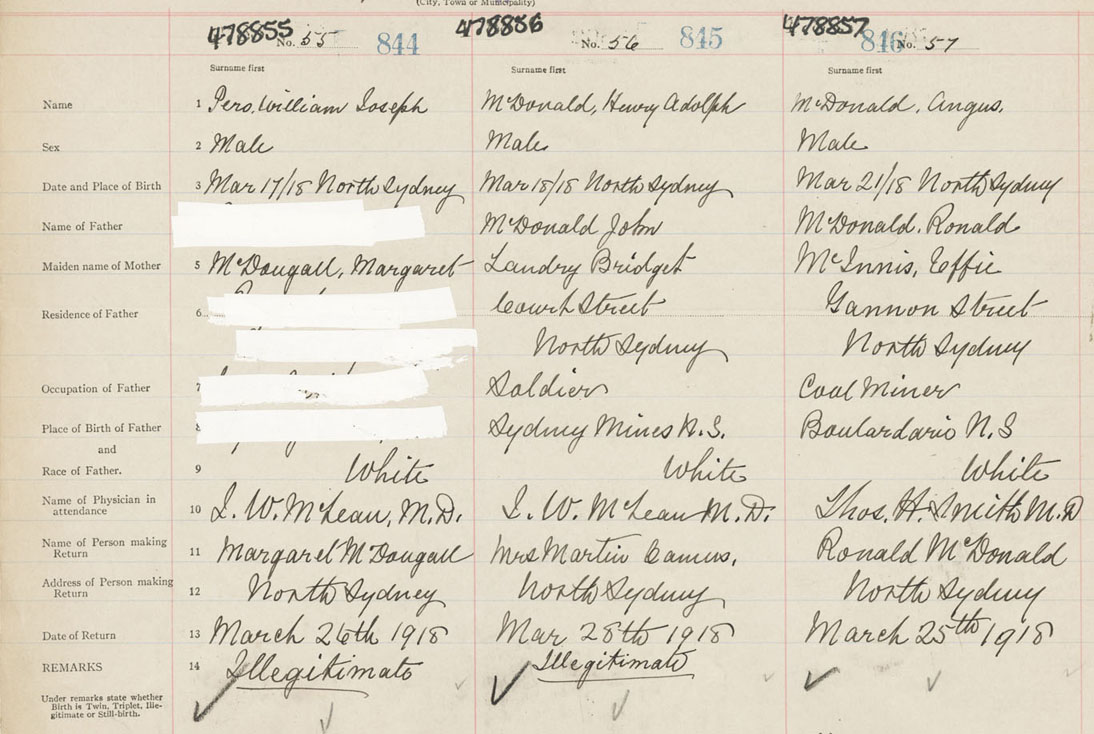 (City, Town or Municipality)
478855 No. 55 844 478856 No. 56 845 478857 846 No. 57
Surname first Surname first Surname first
Name 1 Pero, William Joseph McDonald, Henry Adolph McDonald, Angus,
Sex 2 Male Male Male
Date and Place of Birth 3 Mar 17/18 North Sydney Mar 18/18 North Sydney Mar 21/18 North Sydney
Name of Father McDonald John McDonald, Ronald
Maiden name of Mother 5 McDougall, Margaret Landry Bridget McInnis, Effie
Residence of Father 6 Court Street Gannon Street
North Sydney North Sydney
Occupation of Father 7 Soldier Coal Miner
Place of Birth of Father 8 Sydney Mines N.S. Boulardarie N.S
and
Race of Father. 9 White White White
Name of Physician in attendance 10 L. W. McLean, M.D. L. W. McLean M.D. Thos. H. Smith M.D
Name of Person making Return 11 Margaret McDougall Mrs Martin Ronald McDonald
Address of Person making Return 12 North Sydney North Sydney North Sydney
Date of Return 13 March 26th 1918 Mar 28th 1918 March 25th 1918
REMARKS 14 Illegitimate Illegitimate
Under remarks state whether
Birth is Twin, Triplet, Ille-
gitimate or Still-birth.